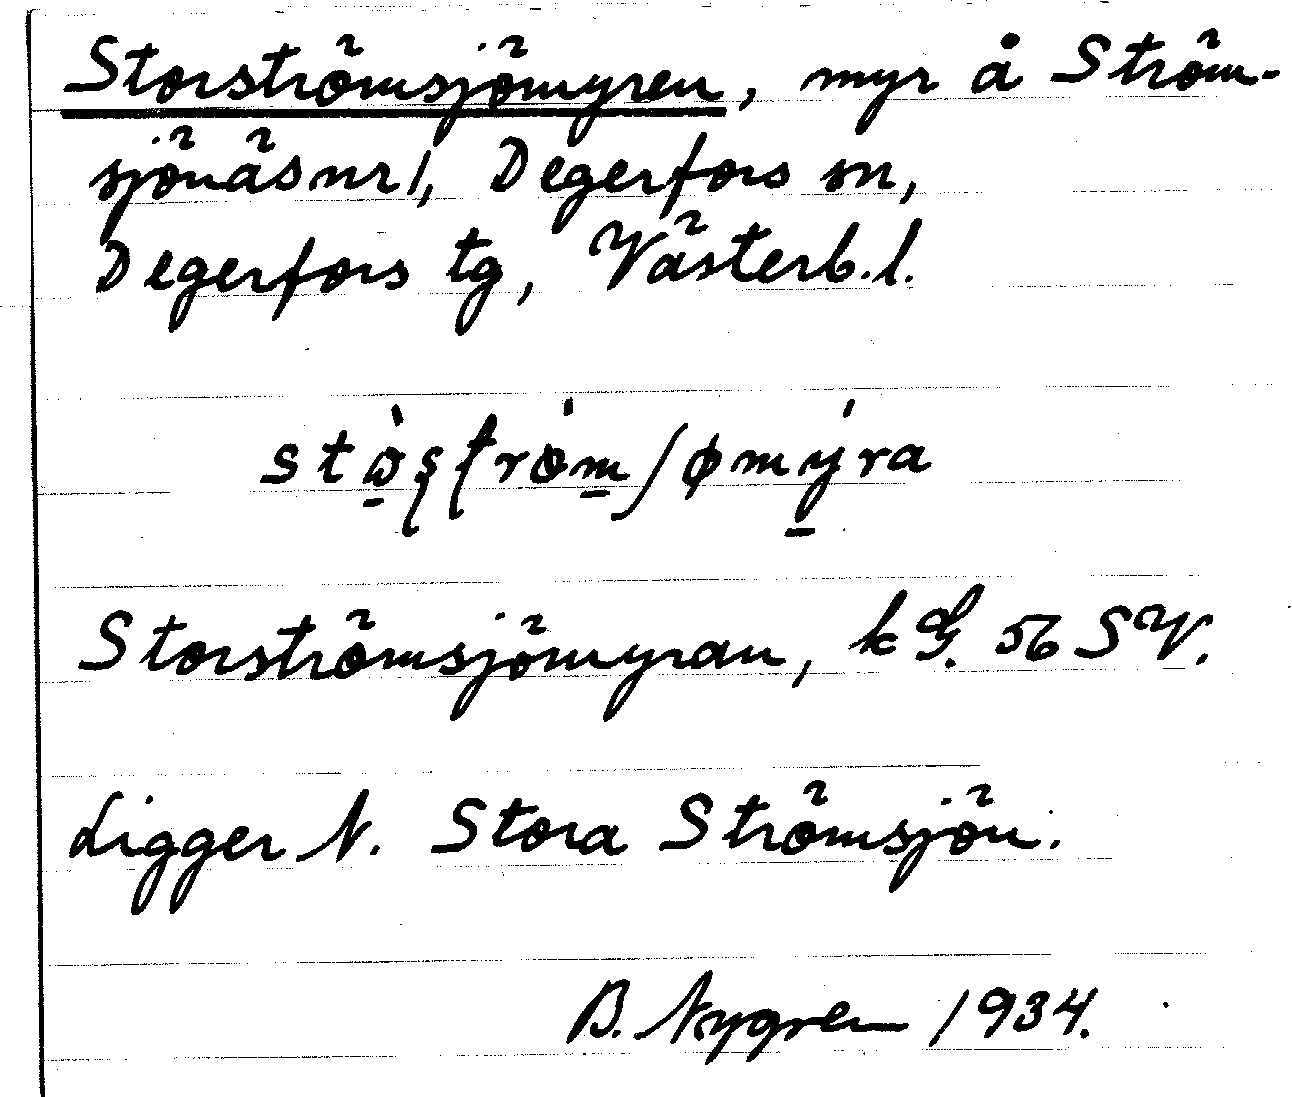 Storströmsjömyren, myr å Ström-
sjönäs nr 1, Degerfors sn,
Degerfors tg, Västerb. l.
Storströmsjömyran, k G. 56 SV.
Ligger N. Stora Strömsjön.
B. Nygren 1934.